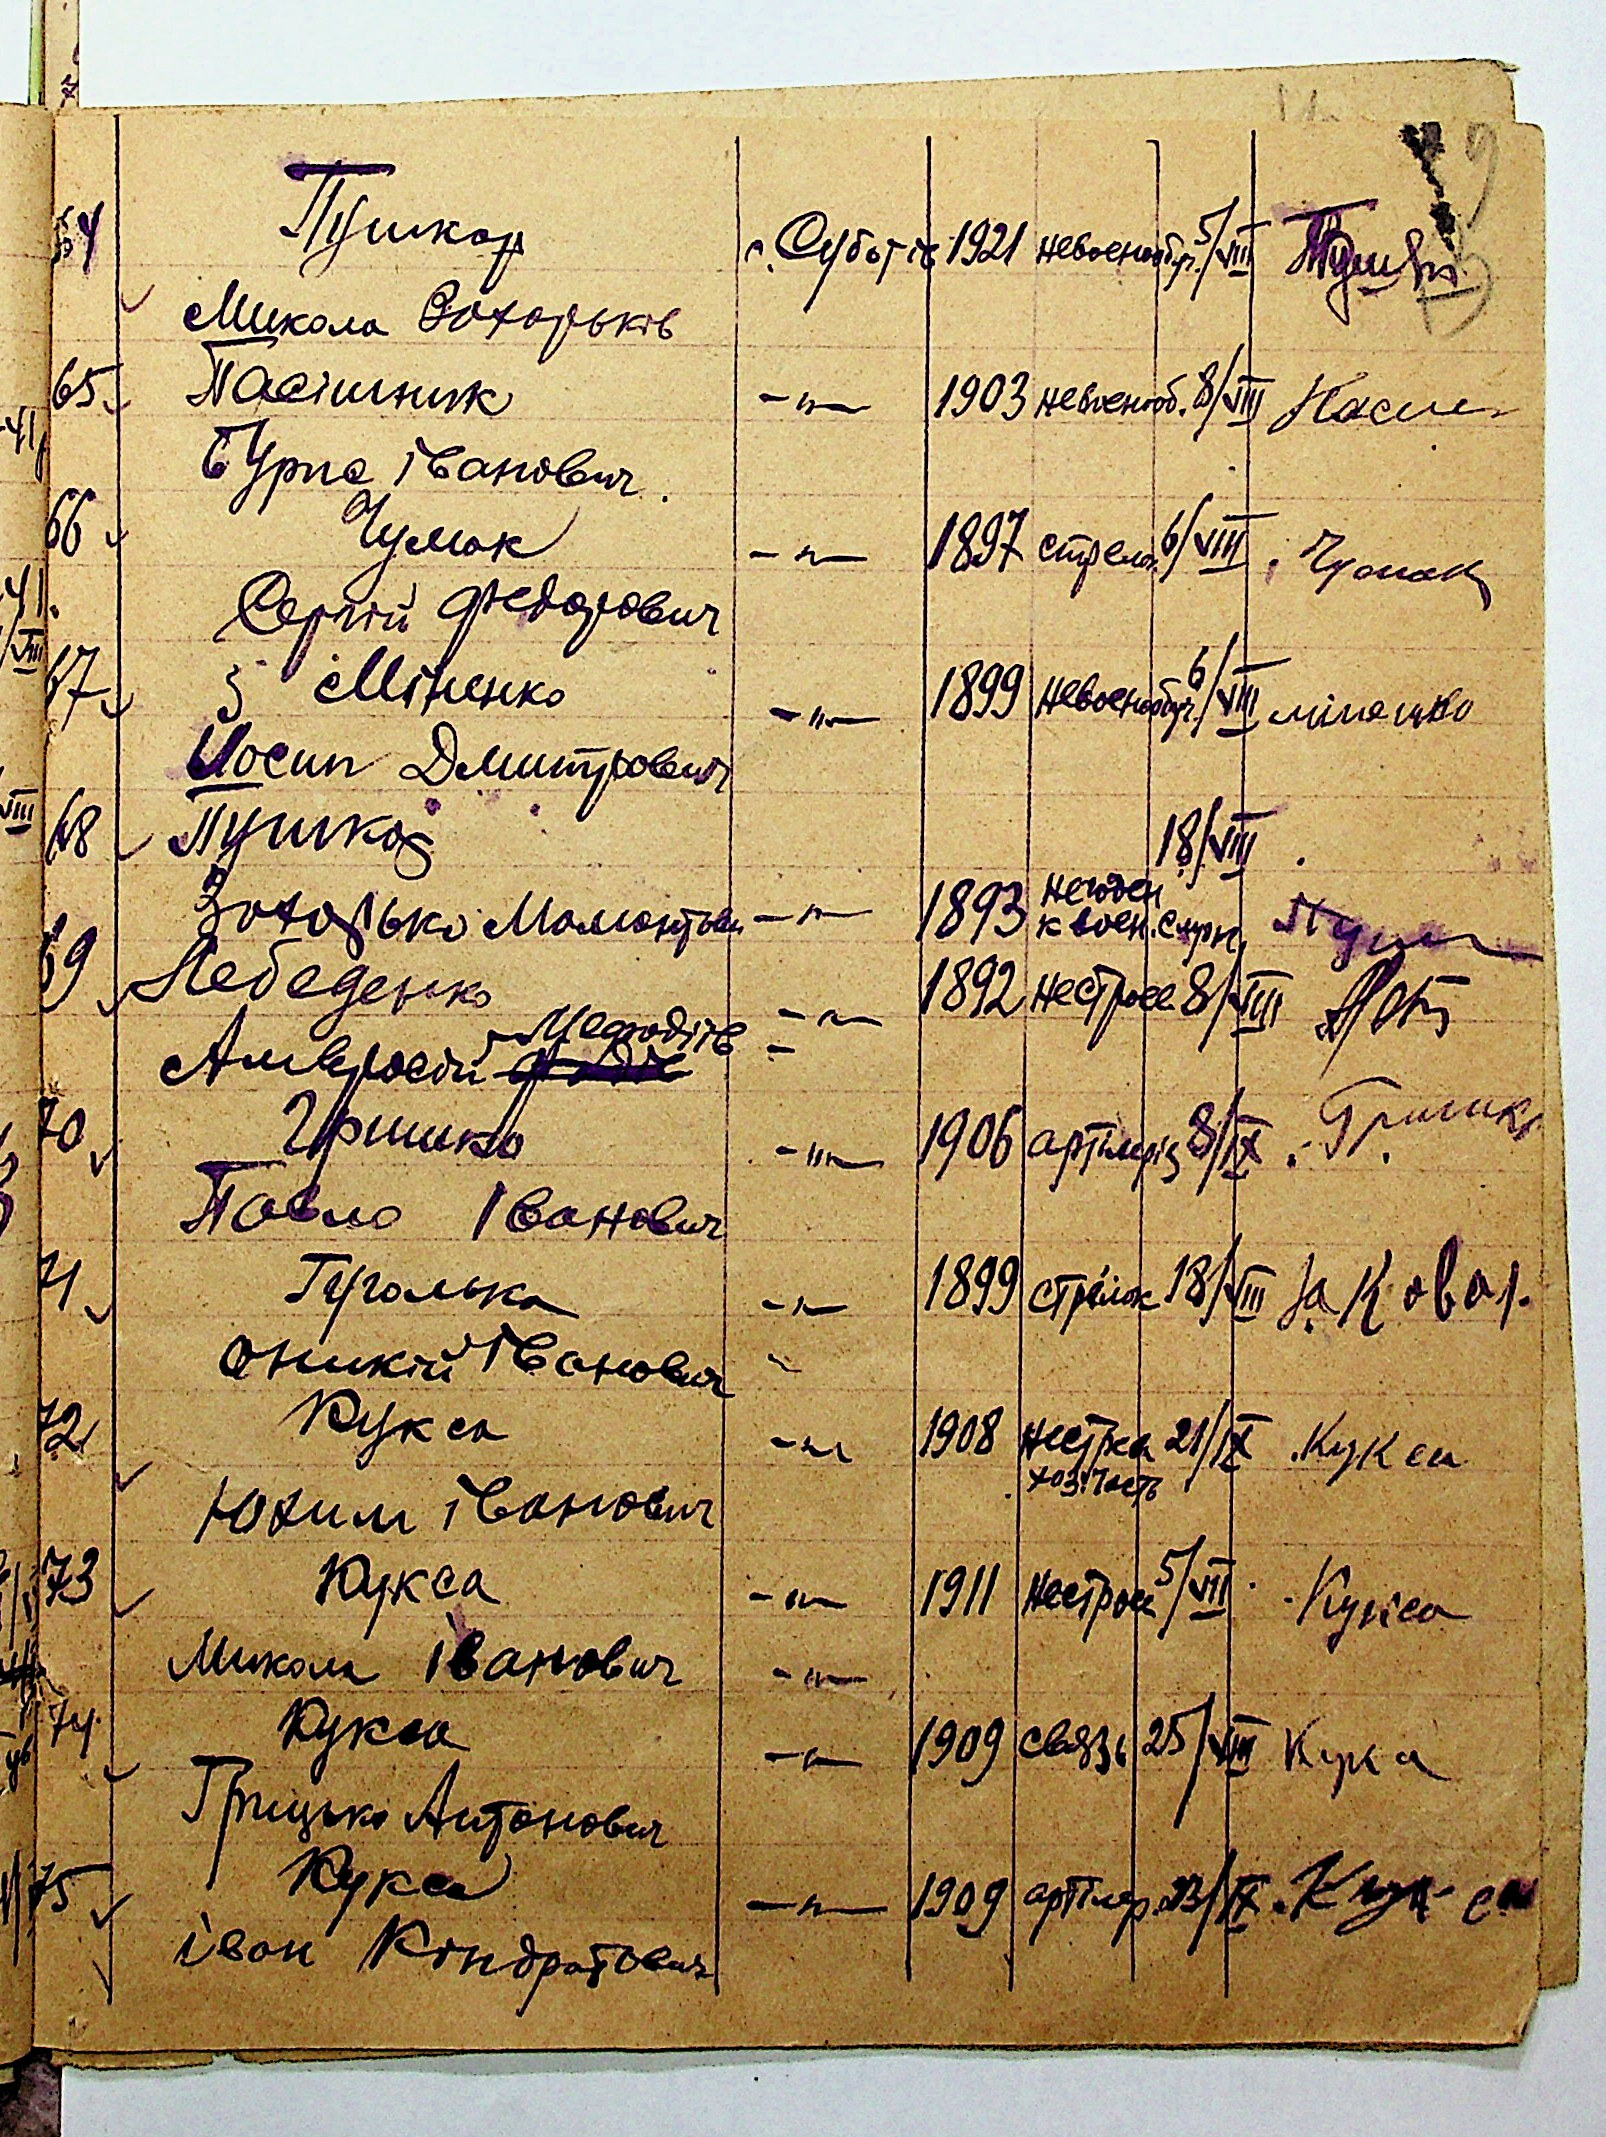 64 Пушкар с. Суботів 1921 невоеннообуч. 5/VIII
Микола Захарьків
65 Пасішник -"- 1903 невоенооб. 8/VIII Пасіш
Гурпа Іванович.
66 Чумак -"- 1897 стрелок 6/VIII Чумак
Сергій Федорович
67 Міненко -"- 1899 невоенообуч. 6/VIII міненко
Йосип Дмитрович
68 Пушкар 18/VIII
Захарько Мамонтьев -"- 1893 негоден к воен. служ. Пуш
69 Лебеденко -"- 1892 нестрое 8/VIII
Амвросій Мефодіїв
70 Гришко -"- 1906 артілеріц 8/IX Гришк
Павло Іванович
71 Гуголька -"- 1899 стрілок 18/VIII За Ковал.
Оникій Іванович
72 Кукса -"- 1908 нестрев 21/IX Кукса
хоз. часть
Юхим Іванович
73 Кукса -"- 1911 нестроев 5/VIII Кукса
Микола Іванович -"-
74 Кукса -"- 1909 связь 25/VIII Кукса
Грицько Антонович
75 Кукса -"- 1909 артілер. 23/IX Кукса
Іван Кіндратович